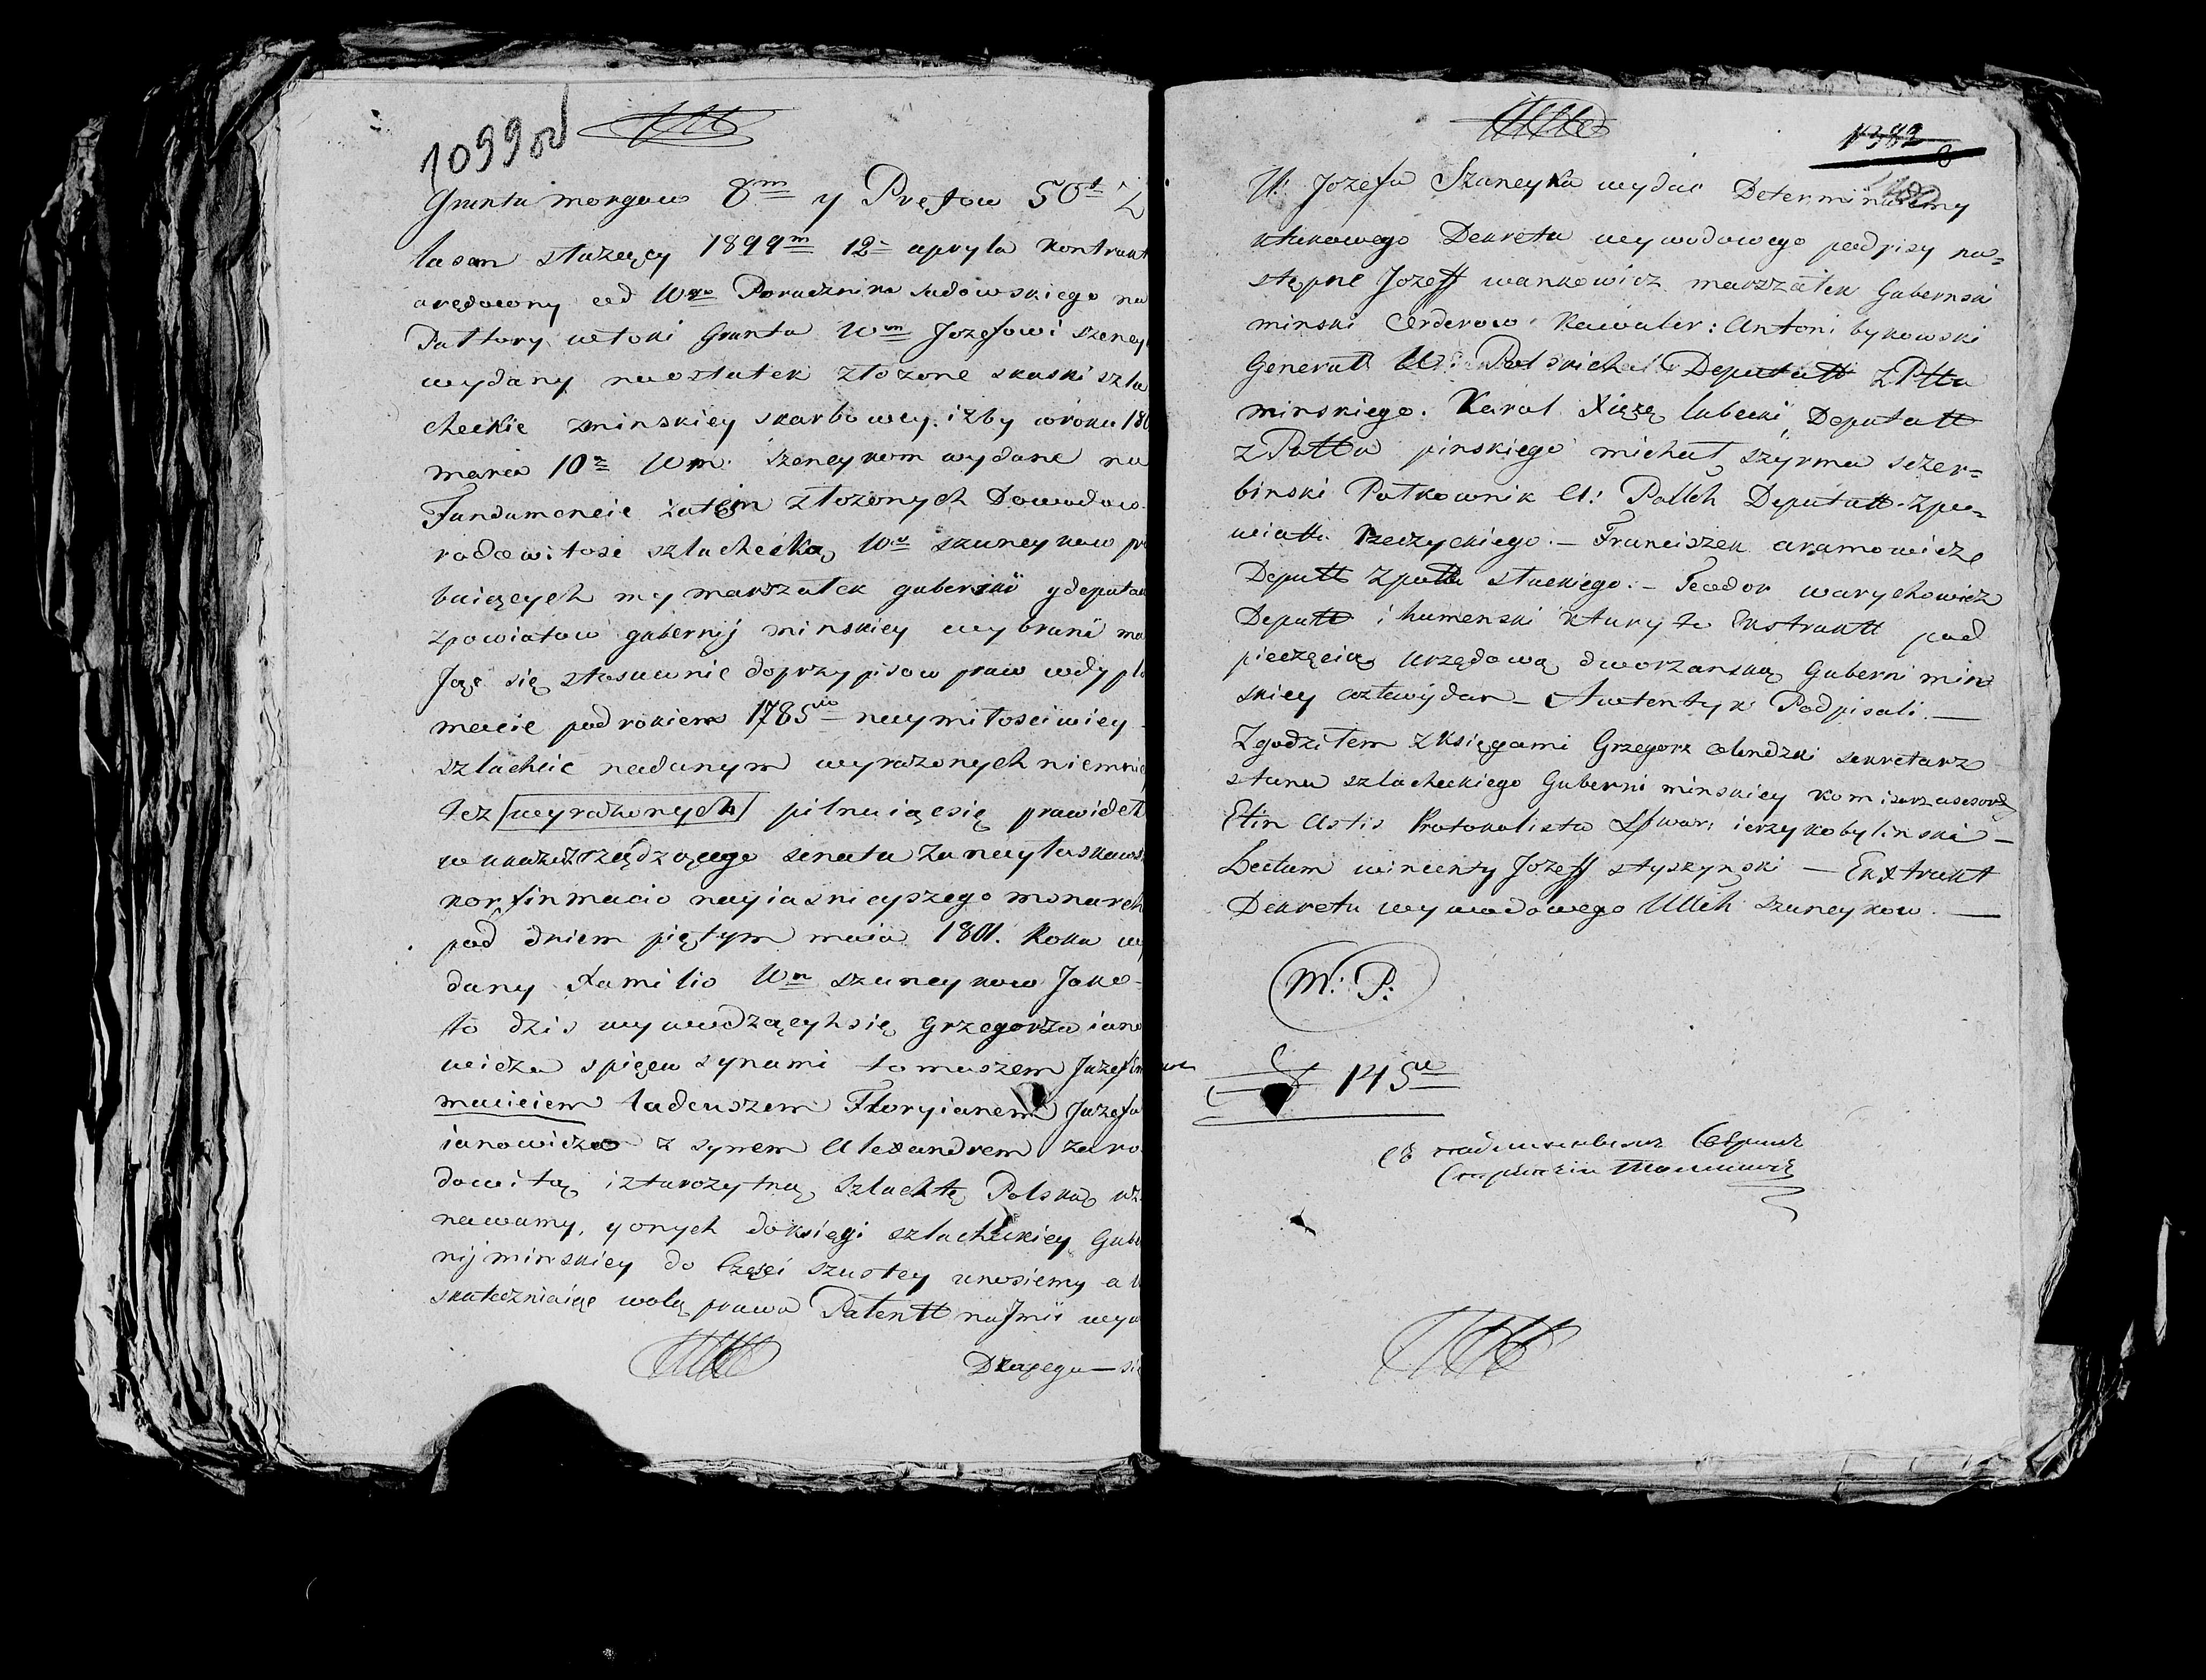 1099 od
Grunta morgow 8m y Prętow 50t Z
lasem służący 1899m 12 apryla kontrakt
arędowny od Wgo Porucznika Sadowskiego na
Pułtory włoki Grunta Wm Jozefowi Szeney
wydany naostatek złożone skaski szla
checkie zminskiey skarbowey izby wroku 180
marca 10 Wm Szeneykom wydane na
Fundamencie zatem złożonych Dowodow
rodowitość szlachecką Wm szuneykow pr
buiących my marszałek guberski y deputa
zpowiatow gubernij minskiey wybrani ma
Jąc się stosownie doprzypisow praw wdypl
macie pod rokiem 1785 naymiłościwiey
szlachcie nadanym wyrażonych niemni
też [wyrażonych] pilnuiącsię prawideł
w ukazie rządzącego senatu za nayłaskaws
konfirmacio nayiasnieyszego monarch
pod dniem piętym maia 1801. Roku w
dany Familio Wm szuneykow Jako
to dzis wywodzącyhsię Grzegorza iano
wicza spięcu synami tomaszem Jozefem
macieiem tadeuszem Floryianem Jozefa
ianowicza z synem Alexandrem za ro
dowitą istarożytną szlachtę Polską uz
nawamy, yonych doksięgi szlacheckiey Gub
nij minskiey do Częsci szustey wnosiemy a U
skuteczniaiąc wolą prawa Patentt naJmie wyw
Drzącego — si
1382
W: Jozefa Szuneyka wydać Determinuiemy
ktukowego Dekretu wywodowego podpisy na=
stępne Jozeff wankowicz marszałek Gubernski
minski Orderow Kawaler: Antoni bykowski
Generał W: Polskich Deputatt z Pttu
minskiego. Karol Xiążę lubecki, Deputatt
z Pottu pinskiego michał szyrma szczer=
binski Pułkownik W: Pollch Deputatt zpo=
wiattu Rzeczyckiego.— Franciszek aramowicz
Deputt zpottu słuckiego.— Teodor warychowicz
Deputt ihumenski ktury to Exstraktt pod
pieczęcią urzędową dworzanską Guberni min
skiey wydan — Awtentyk Podpisali.—
Zgodziłem z księgami Grzegorz sekretarz
stanu szlacheckiego Guberni minskiey
Protokolista ierzy kobylinski —
Lectum wincenty Jozeff słyszynski — Extrakt
Dekretu wywodowego UUch Szuneykow.—
M: P:
145